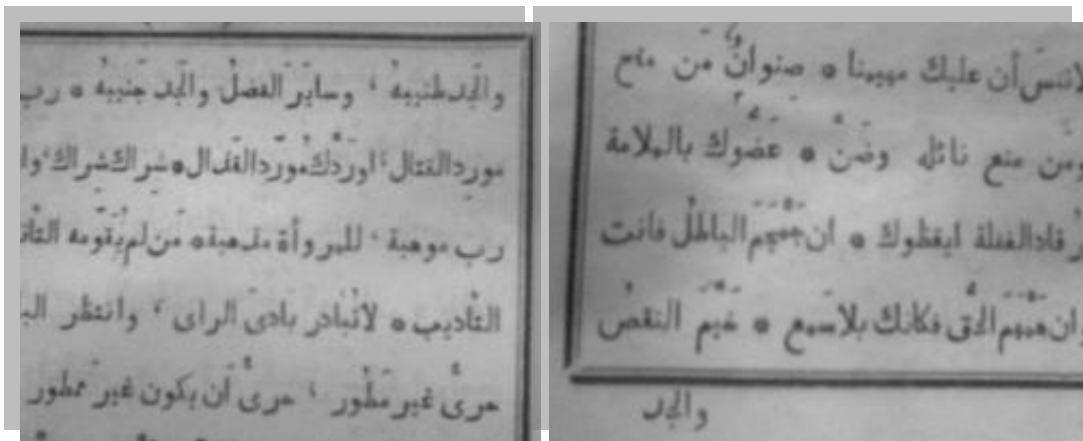 لاتنسَ أن عليك مهيمنا * صنوانٌ مَن منح
ومَن منع نائله وضنّ * عضّوك بالملامة
الغفلة ايقظوك * ان جمجم الباطل فانت
ان همهم الحق فكانك بلا سمع * النقض
والجد
والجد طنيبه ، وساير الفضل والجد جنيبه * رب
مورد القتال ، اوردك مورد القذال * شراك شراك ،
رب موهبة ، للمروأة مذهبة * من لم يقومه
التأديب * لاتبادر بادى الراى ، وانتظر
حرى غير مطور ، حرى أن يكون غير ممطور